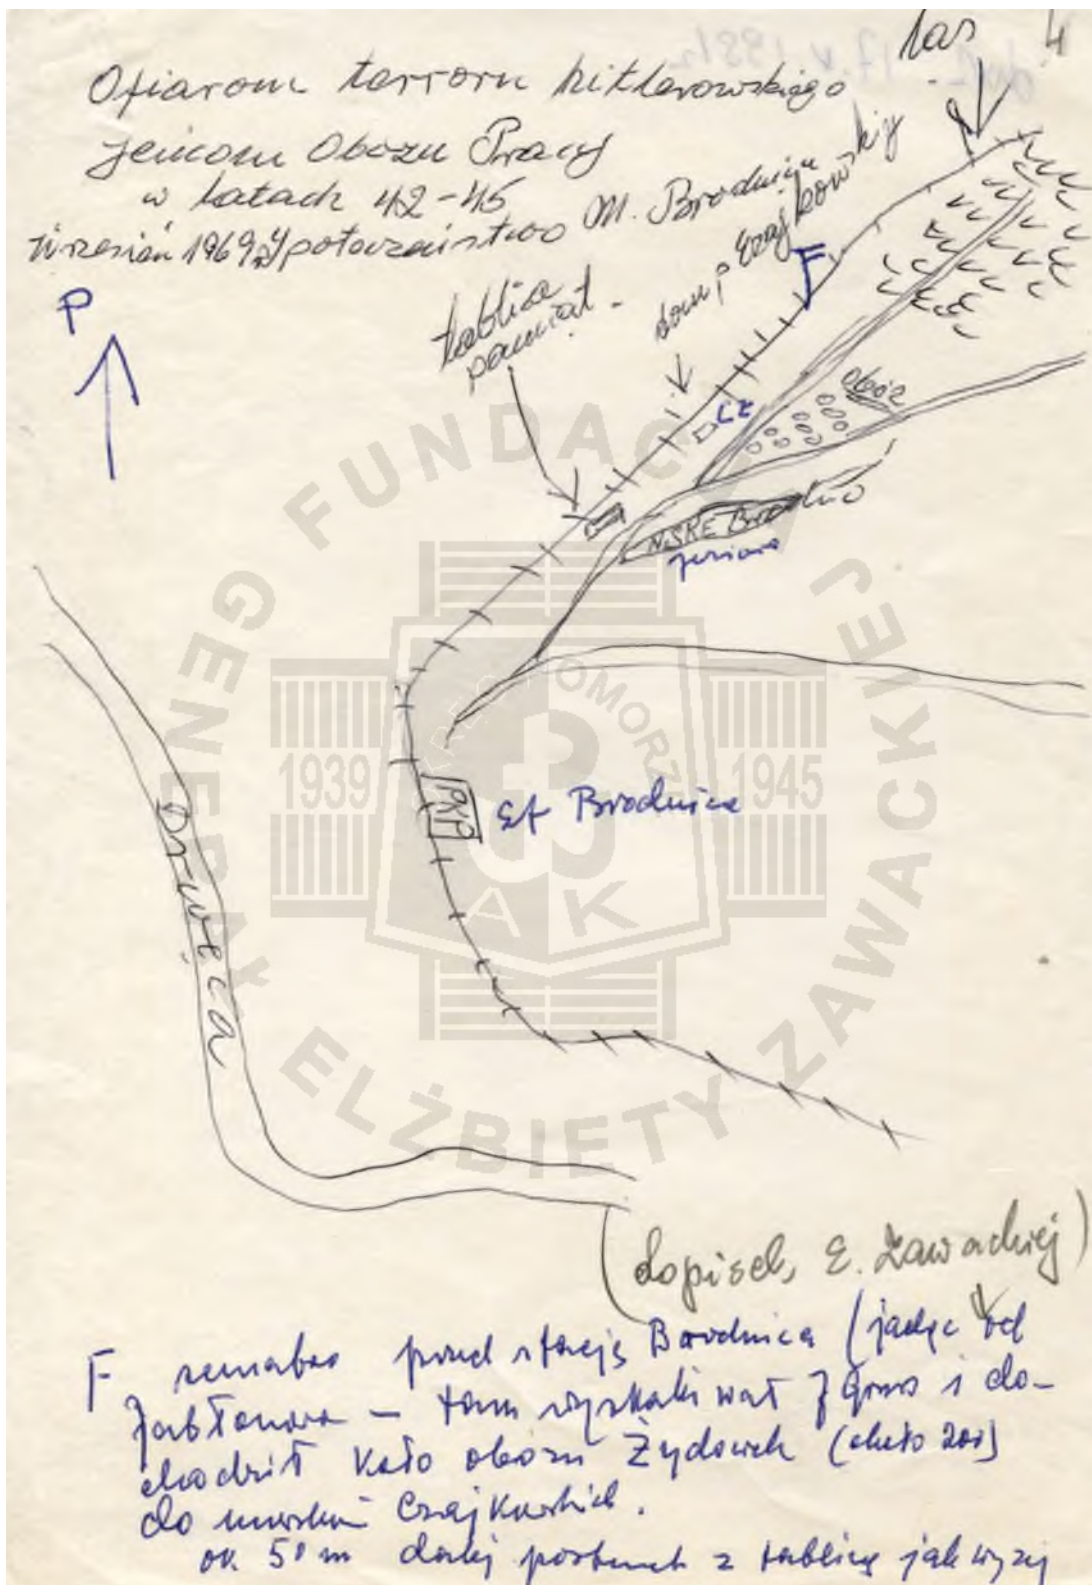 las 4
Ofiarom terroru hitlerowskiego
jeńcom Obozu Pracy
w latach 42-45
wrzesień 1969 r społeczeństwo M. Brodnicy
P
tablica
pamiąt.
dom p Czajkowskiej
F
Obóz
CZ
NiSKE Brodno
jezioro
PKP
St Brodnica
Drwęca
FUNDACJA
GENERAŁ ELŻBIETY ZAWACKIEJ
POMORZE
1939
1945
AK
(dopisek, E. Zawackiej)
F semafor przed stacją Brodnica (jadąc od
Jabłonowa — tam wyskakiwał z gries i do-
chodził koło obozu Żydówek (około 200)
do Czajkowskich.
ok. 50 m dalej z tablicą jak wyżej